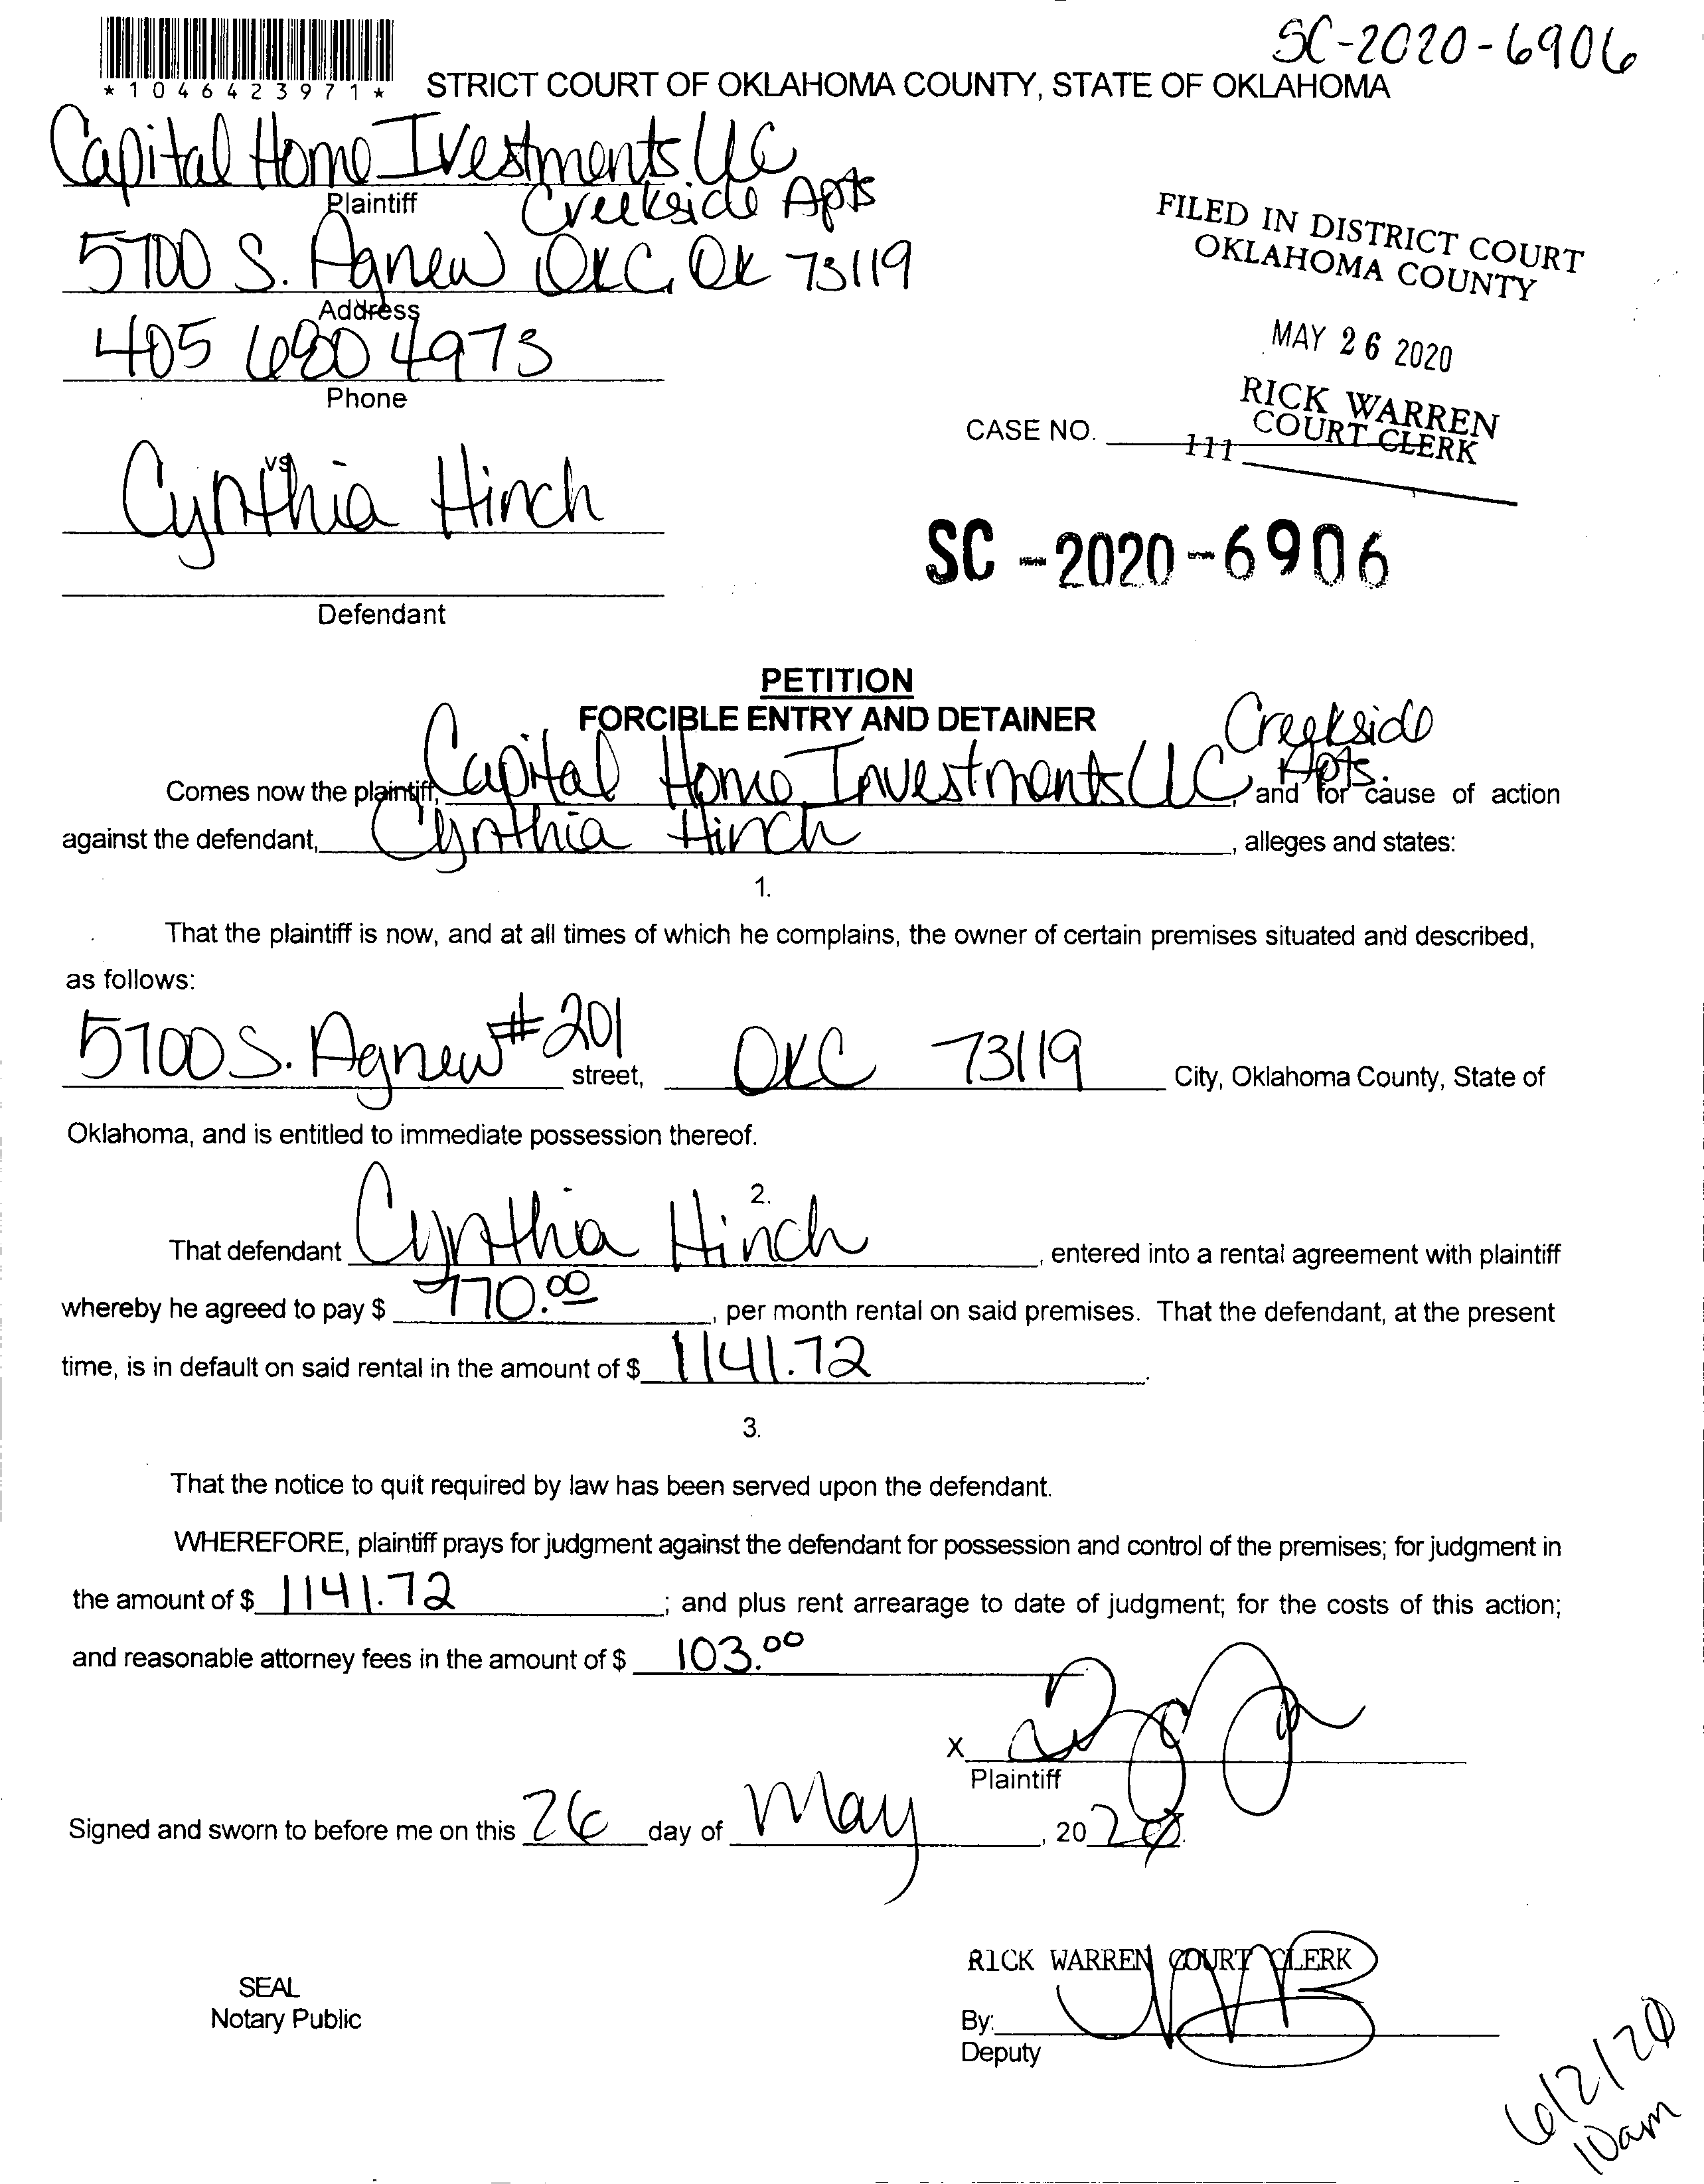 SC-2020-6906
*1046423971*
STRICT COURT OF OKLAHOMA COUNTY, STATE OF OKLAHOMA
Capital Home Ivestments LLC
Plaintiff
Creekside Apts
5700 S. Agnew OKC, OK 73119
Address
405 680 4973
Phone
FILED IN DISTRICT COURT
OKLAHOMA COUNTY
MAY 26 2020
RICK WARREN
COURT CLERK
111
CASE NO.
vs
Cynthia Hinch
Defendant
SC-2020-6906
PETITION
FORCIBLE ENTRY AND DETAINER
Comes now the plaintiff, Capital Home Investments LLC Creekside Apts., and for cause of action
against the defendant, Cynthia Hinch, alleges and states:
1.
That the plaintiff is now, and at all times of which he complains, the owner of certain premises situated and described,
as follows:
5700 S. Agnew #201 street, OKC 73119 City, Oklahoma County, State of
Oklahoma, and is entitled to immediate possession thereof.
2.
That defendant Cynthia Hinch, entered into a rental agreement with plaintiff
whereby he agreed to pay $ 770.00, per month rental on said premises. That the defendant, at the present
time, is in default on said rental in the amount of $ 1141.72.
3.
That the notice to quit required by law has been served upon the defendant.
WHEREFORE, plaintiff prays for judgment against the defendant for possession and control of the premises; for judgment in
the amount of $ 1141.72; and plus rent arrearage to date of judgment; for the costs of this action;
and reasonable attorney fees in the amount of $ 103.00
X
Plaintiff
Signed and sworn to before me on this 26 day of May, 2020.
RICK WARREN COURT CLERK
SEAL
Notary Public
By:
Deputy
6/2/20
10am